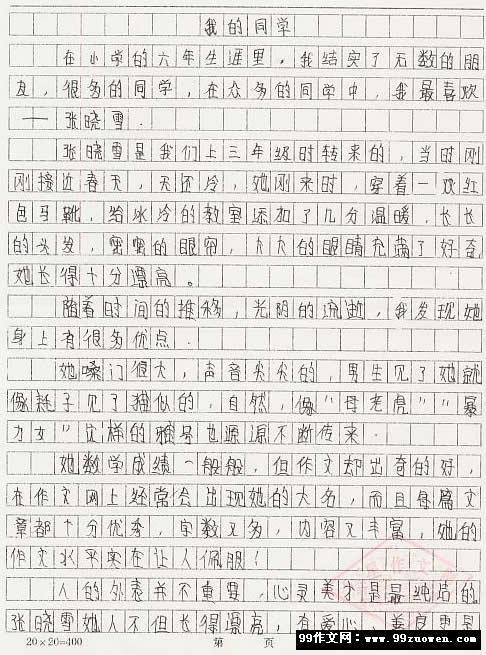 我的同学
在小学的六年生涯里，我结实了无数的朋
友，很多的同学，在众多的同学中，我最喜欢
——张晓雪．
张晓雪是我们上三年级时转来的，当时刚
刚接近春天，天还冷，她刚来时，穿着一双红
色马靴，给冰冷的教室添加了几分温暖，长长
的头发，密密的眼帘，大大的眼睛充满了好奇
她长得十分漂亮。
随着时间的推移，光阴的流逝，我发现她
身上有很多优点．
她嗓门很大，声音尖尖的，男生见了她就
像耗子见了猫似的，自然，像"母老虎""暴
力女"这样的雅号也源源不断传来．
她数学成绩一般般，但作文却出奇的好，
在作文网上经常会出现她的大名，而且每篇文
章都十分优秀，字数又多，内容又丰富，她的
作文水平实在让人佩服！
人的外表并不重要，心灵美才是最纯洁的
张晓雪她人不但长得漂亮，有爱心，善良更是
20×20=400 第 页
99作文网：www.99zuowen.com